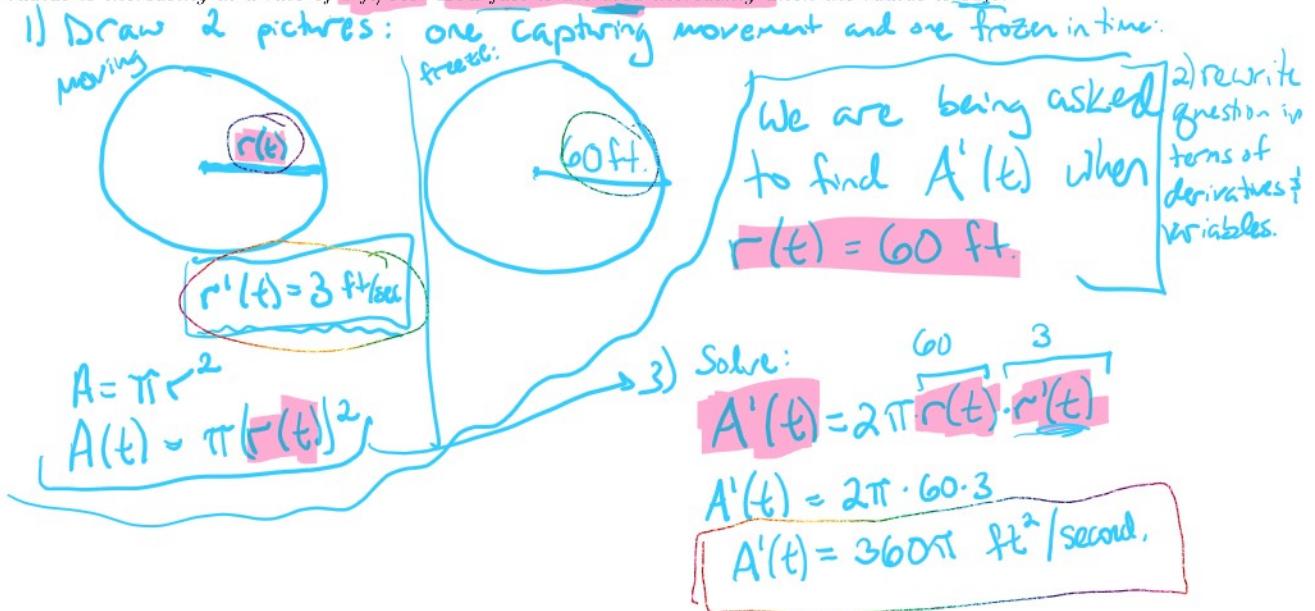 1) Draw 2 pictures: one capturing movement and one frozen in time:
moving
r(t)
r'(t) = 3 ft/sec
A = πr²
A(t) = π(r(t))²
freeze:
60 ft.
We are being asked
to find A'(t) when
r(t) = 60 ft.
2) rewrite
question in
terms of
derivatives &
variables.
3) Solve:
60 3
A'(t) = 2π r(t) · r'(t)
A'(t) = 2π · 60 · 3
A'(t) = 360π ft²/second.